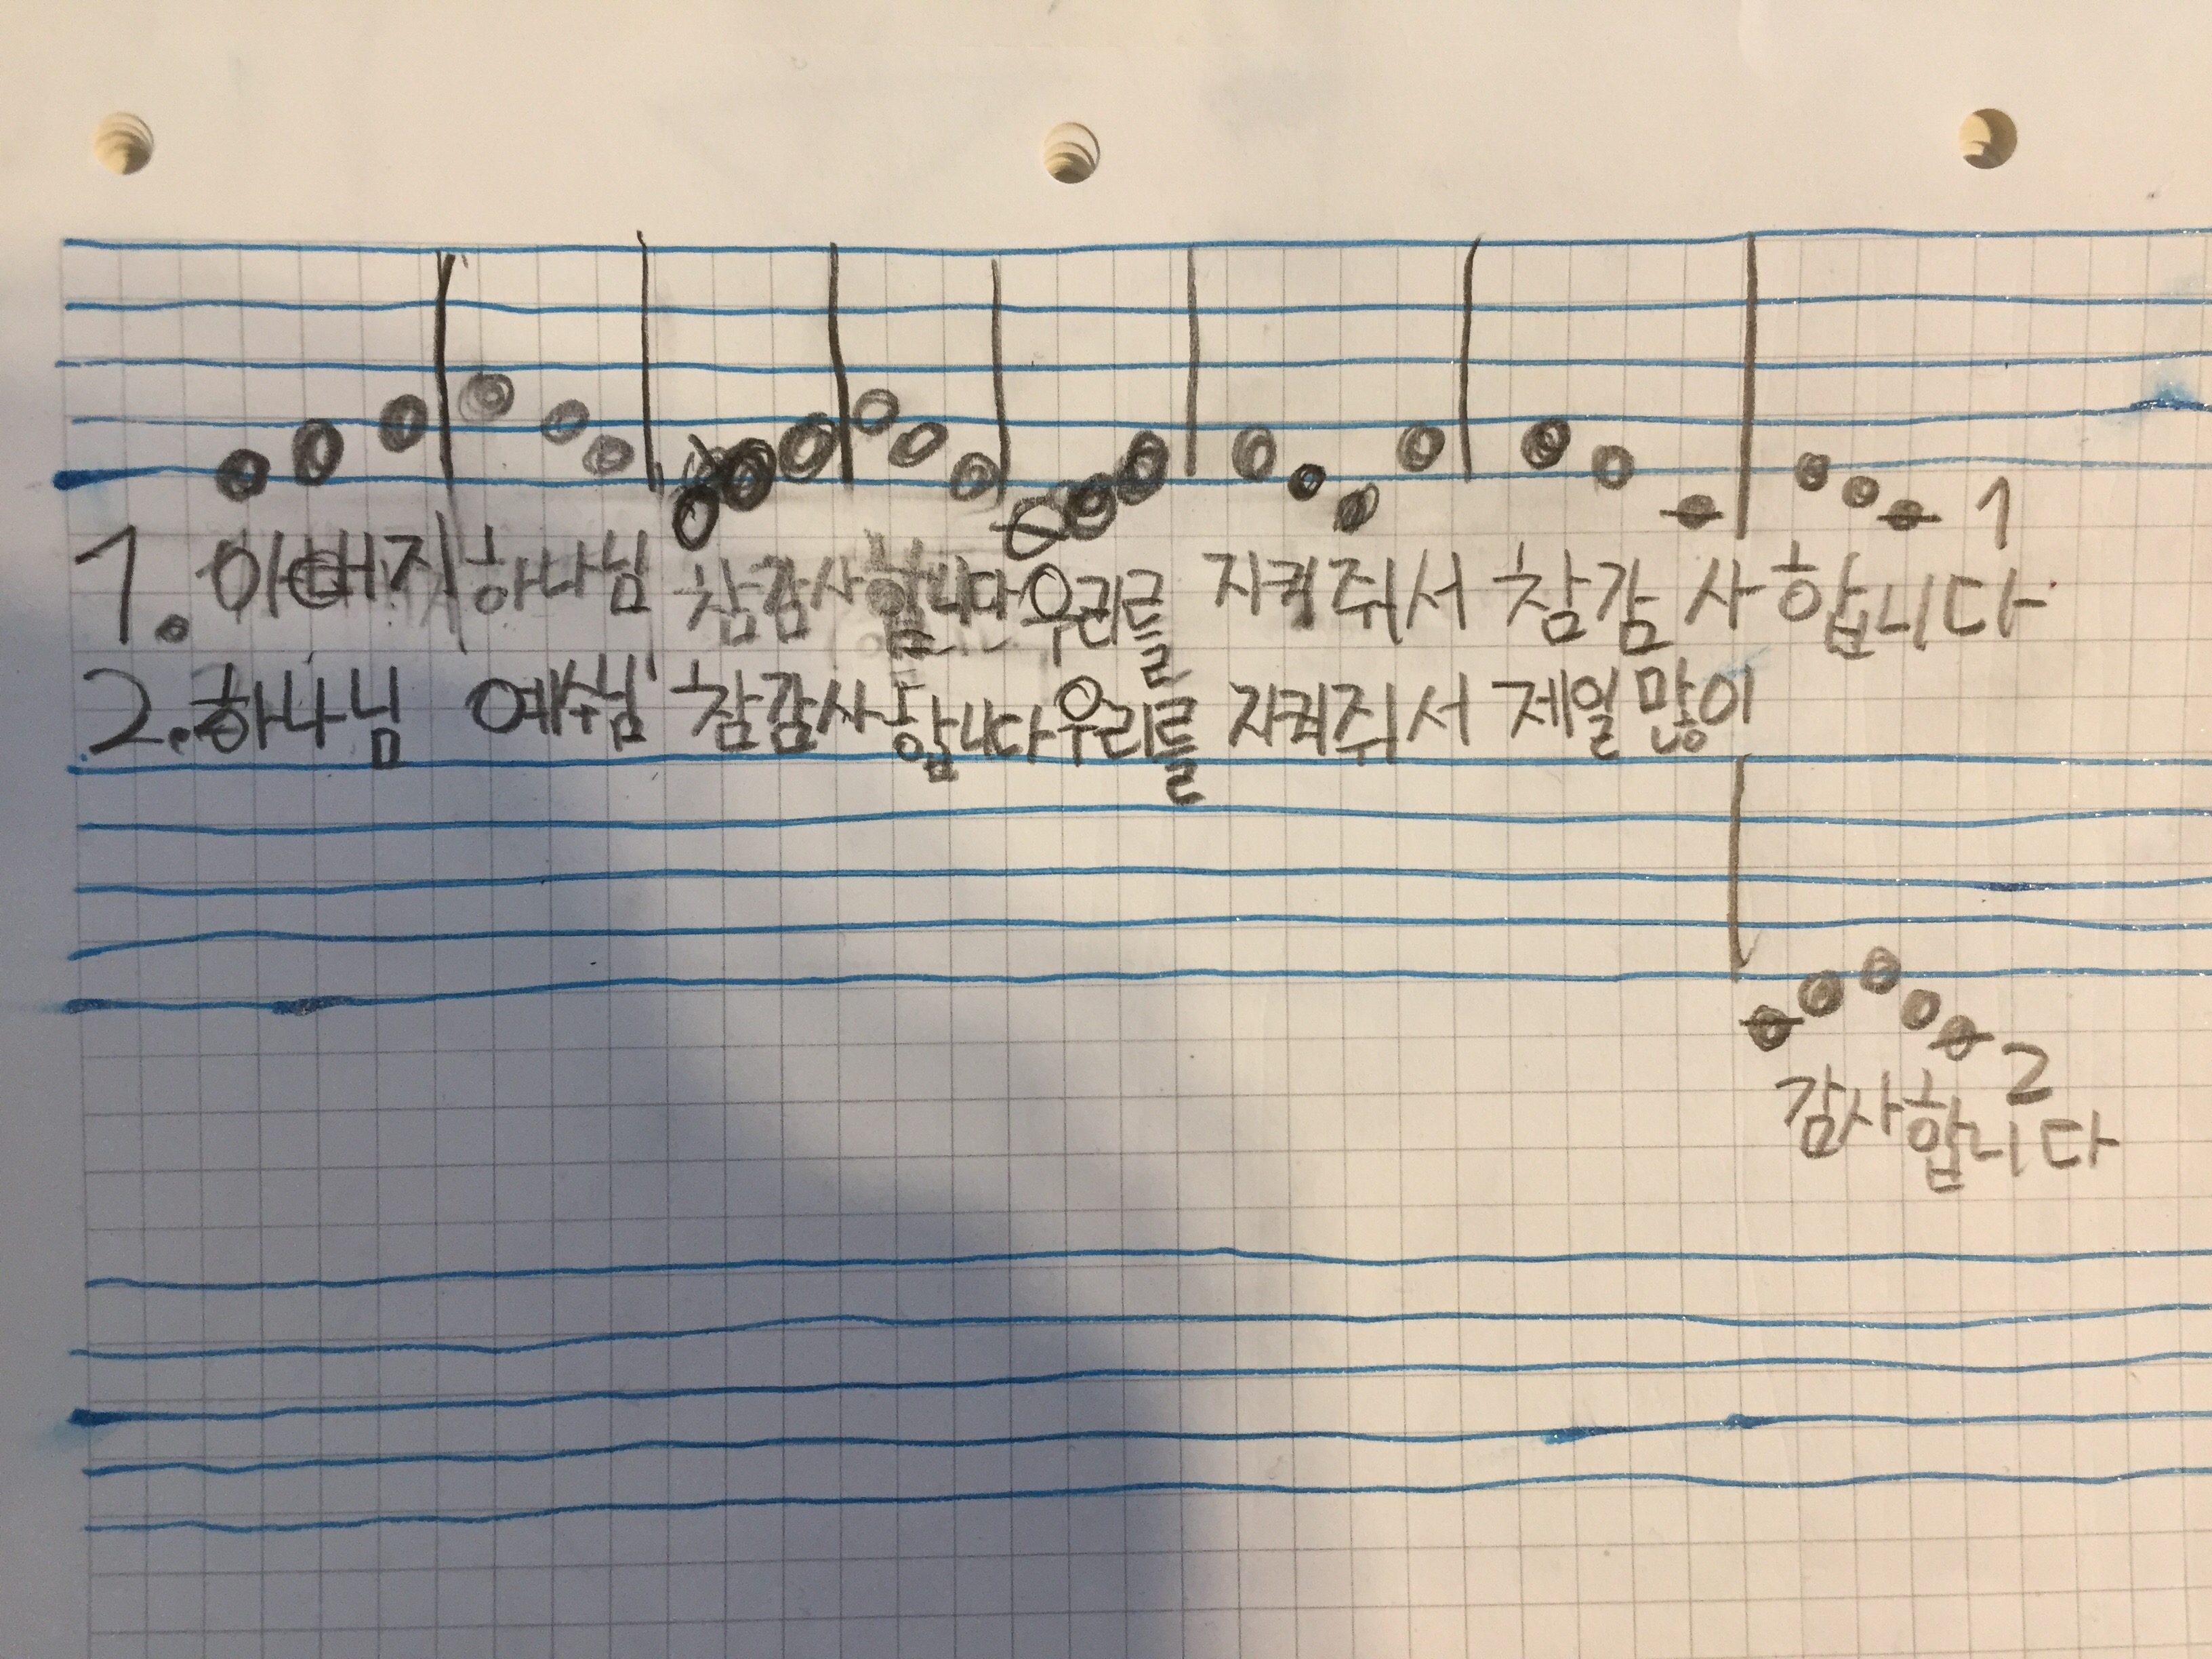 1
1. 아버지 하나님 참감사합니다 우리를 지켜줘서 참감사합니다
2. 하나님 예수님 참감사합니다 우리를 지켜줘서 제일 많이
2
감사합니다